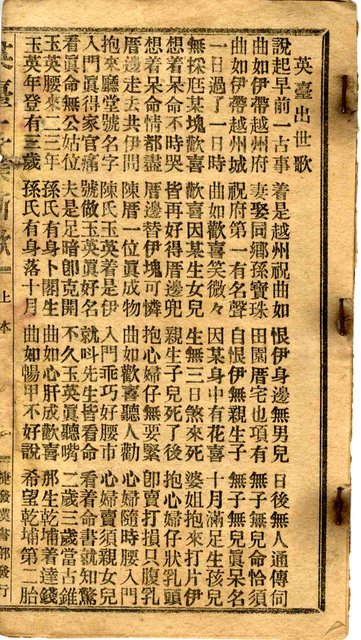 英臺出世歌
說起早前一古事 着是越州祝曲如 恨伊身邊無男兒 日後無人通傳伺
曲如伊帶越州府 妻娶同鄉孫寶珠 田園厝宅也項有 無子無兒命恰須
曲如伊帶越州城 祝府第一有名聲 自恨伊無親生子 無子無兒眞呆名
一日過了一日時 曲如歡喜笑微々 因某身中有花喜 十月滿足生孩兒
無採某塊歡喜 歡喜因某生女兒 生無三日煞來死 婆姐抱來打片伊
想着呆命不時哭 皆再好得厝邊兜 親生子兒死了後 抱心婦仔狀乳頭
想着呆命情都盡 厝邊替伊塊可憐 抱心婦仔無要緊 卽賣打損只腹乳
厝邊走去共伊問 陳厝一位眞成物 曲如歡喜聽人勸 心婦隨時腰入門
抱來廳堂號名字 陳氏玉英着是伊 入門乖巧好腰市 心婦賣須親女兒
入門眞得家官痛 號做玉英眞好名 就叫先生皆看命 看着命書就知驚
看眞命無公姑位 夫是足暗卽克開 不久玉英眞聽嘴 二歲三歲當古錐
玉英腰來二三年 孫氏有身卜閣生 曲如心肝成歡喜 那生乾埔着達錢
玉英年登有三歲 孫氏有身落十月 曲如暢甲不好說 希望乾埔第二胎
上本
捷發漢書部發行